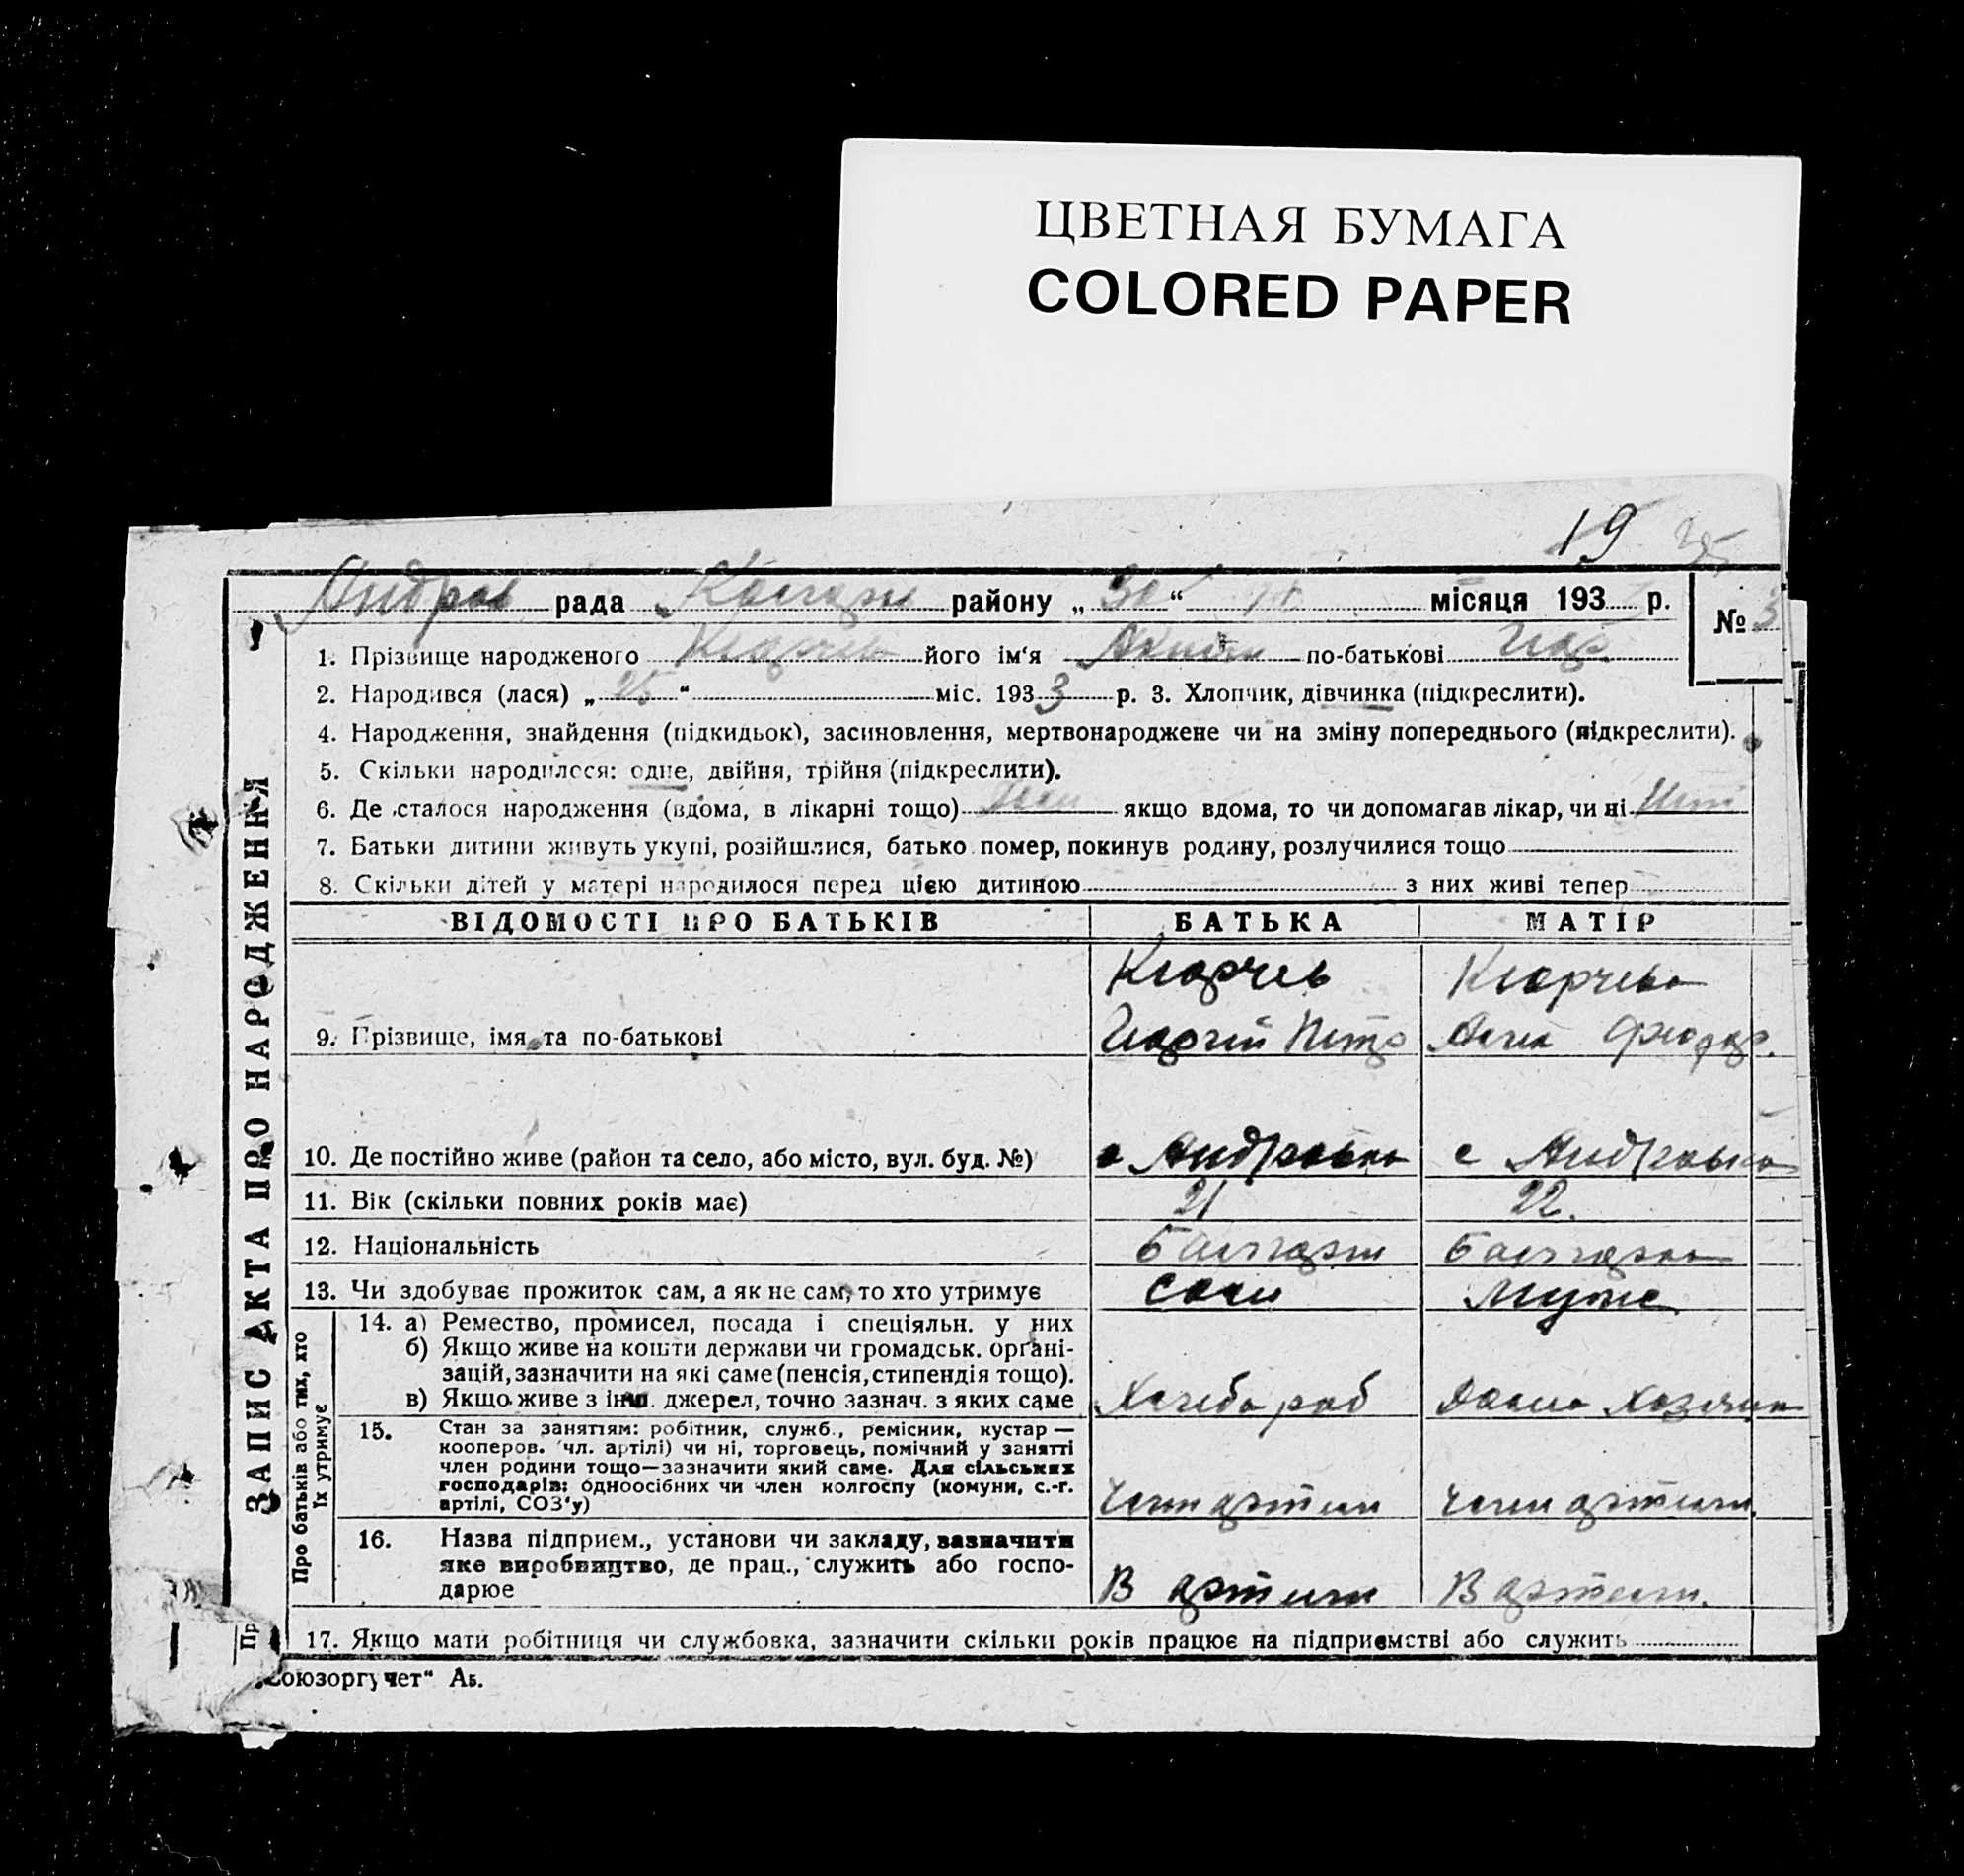 ЦВЕТНАЯ БУМАГА
COLORED PAPER
19 35
Андров рада района району „30“ місяця 193 р.
№ 3
1. Прізвище народженого Кюрчев його ім‘я по-батькові Геор
2. Народився (лася) „25“ міс. 1933 р. 3. Хлопчик, дівчинка (підкреслити).
4. Народження, знайдення (підкидьок), засиновлення, мертвонароджене чи на зміну попереднього (підкреслити).
5. Скільки народилося: одне, двійня, трійня (підкреслити).
6. Де сталося народження (вдома, в лікарні тощо) якщо вдома, то чи допомагав лікар, чи ні
7. Батьки дитини живуть укупі, розійшлися, батько помер, покинув родину, розлучилися тощо
8. Скільки дітей у матері народилося перед цією дитиною з них живі тепер
ВІДОМОСТІ ПРО БАТЬКІВ БАТЬКА МАТІР
Кюрчев Кюрчева
9. Прізвище, імя та по-батькові Георгій Петр Фіодор.
10. Де постійно живе (район та село, або місто, вул. буд. №) с Андровка с Андровка
11. Вік (скільки повних років має) 21 22.
12. Національність Балгари Балгарка
13. Чи здобуває прожиток сам, а як не сам, то хто утримує сам муже
14. а) Ремество, промисел, посада і спеціяльн. у них
б) Якщо живе на кошти держави чи громадськ. органі-
зацій, зазначити на які саме (пенсія, стипендія тощо).
в) Якщо живе з інш. джерел, точно зазнач. з яких саме Хлебо роб Дома Хозяика
15. Стан за заняттям: робітник, служб., ремісник, кустар —
кооперов. (чл. артілі) чи ні, торговець, помічний у занятті
член родини тощо—зазначити який саме. Для сільських
господарів: одноосібних чи член колгоспу (комуни, с.-г.
артілі, СОЗ‘у) член артели член артели.
16. Назва підприєм., установи чи закладу, зазначити
яке виробництво, де прац., служить або госпо-
дарює В артели В артели.
17. Якщо мати робітниця чи службовка, зазначити скільки років працює на підприємстві або служить
„Союзоргучет“ Аб.
ЗАПИС АКТА ПРО НАРОДЖЕННЯ
Про батьків або тих, хто
їх утримує
Пр